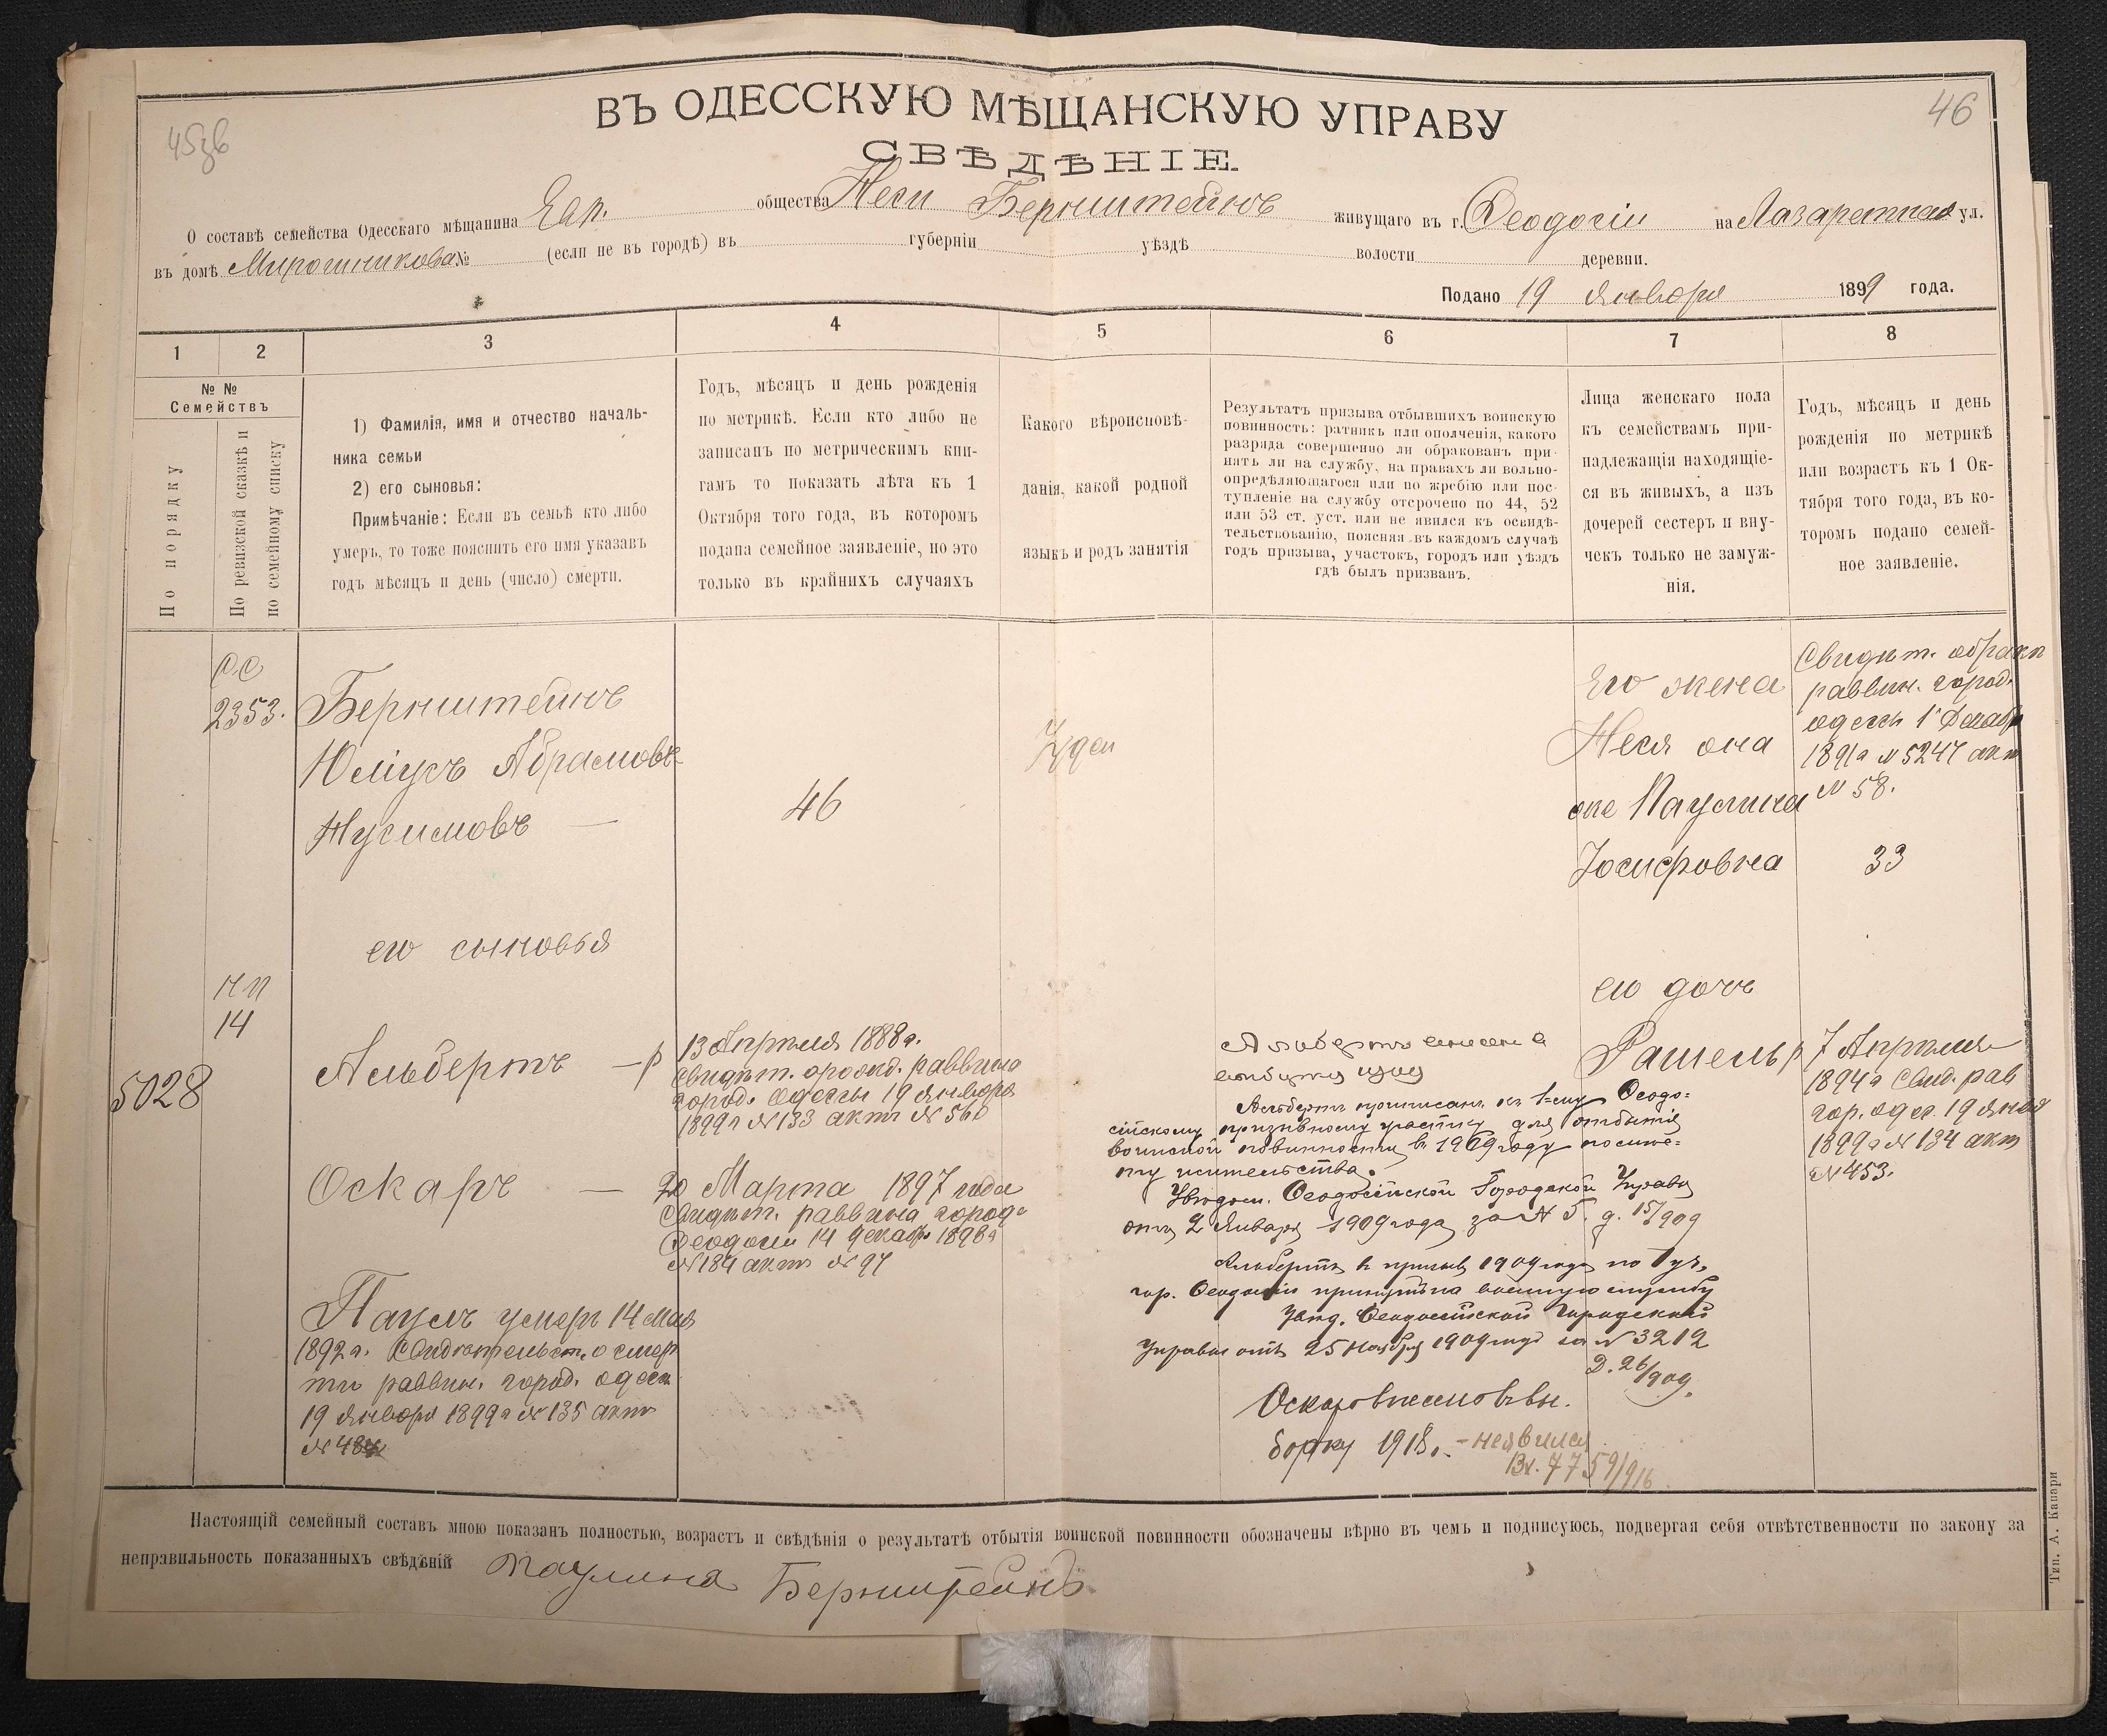 45зв
46
ВЪ ОДЕССКУЮ МѢЩАНСКУЮ УПРАВУ
СВѢДѢНІЕ.
О составѣ семейства Одесскаго мѣщанина Евр. общества Неси Бернштейнъ живущаго въ г. Феодосіи на Лазаретная ул.
въ домѣ Мирошникова № (если не въ городѣ) въ губерніи уѣздѣ волости деревни.
Подано 19 Января 1899 года.
1 2 3 4 5 6 7 8
№ №
Семействъ
По порядку
По ревизской сказкѣ и
по семейному списку
1) Фамилія, имя и отчество началь-
ника семьи
2) его сыновья:
Примѣчаніе: Если въ семьѣ кто либо
умеръ, то тоже пояснить его имя указавъ
годъ мѣсяцъ и день (число) смерти.
Годъ, мѣсяцъ и день рожденія
по метрикѣ. Если кто либо не
записанъ по метрическимъ кни-
гамъ то показать лѣта къ 1
Октября того года, въ которомъ
подана семейное заявленіе, но это
только въ крайнихъ случаяхъ
Какого вѣроисповѣ-
данія, какой родной
языкъ и родъ занятія
Результатъ призыва отбывшихъ воинскую
повинность: ратникъ или ополченія, какого
разряда совершенно ли обракованъ при-
нятъ ли на службу, на правахъ ли вольно-
опредѣляющагося или по жребію или пос-
тупленіе на службу отсрочено по 44, 52
или 53 ст. уст. или не явился къ освидѣ-
тельствованію, поясняя въ каждомъ случаѣ
годъ призыва, участокъ, городъ или уѣздъ
гдѣ былъ призванъ.
Лица женскаго пола
къ семействамъ при-
надлежащія находящіе-
ся въ живыхъ, а изъ
дочерей сестеръ и вну-
чекъ только не замуж-
нія.
Годъ, мѣсяцъ и день
рожденія по метрикѣ
или возрастъ къ 1 Ок-
тября того года, въ ко-
торомъ подано семей-
ное заявленіе.
2353.
Бернштейнъ
Юліусъ Абрамовъ
Нусимовъ —
46
Іудеи
Его жена
Неся она
же Паулина
Іосифовна
Свидѣт. о бракѣ
раввин. город.
Одессы 1 Декабр
1891 г № 5247 акт
№ 58.
33
его сыновья
нп
14
5028
Альбертъ — р
13 Апрѣля 1888 г.
Свидѣт. о рожд. раввина
город. Одессы 19 Января
1899 г № 133 актъ № 560
Оскаръ —
20 Марта 1897 года
Свидѣт. раввина город.
Феодосіи 14 Декабр 1898 г
№ 184 актъ № 97
Паулъ умеръ 14 Мая
1892 г. Свидѣтельст. о смер
ти раввин. город. Одессы
19 Января 1899 г № 135 актъ
его дочь
Рашель р
7 Апрѣля
1894 г Свид. рав
гор. Одес. 19 Янва
1899 г № 134 акт
№ 453.
Альбертъ
Альбертъ приписанъ къ 1-му Ѳеодо=
сійскому призывному участку для отбытія
воинской повинности въ 1909 году по мѣс=
ту жительства.
Увѣдом. Ѳеодосійской Городской Управы
отъ 2 Января 1909 года за № 5. д. 15/909
Альбертъ въ призывъ 1909 года по 1 уч.
гор. Ѳеодосіи принятъ на военную службу
Увѣд. Ѳеодосійской Городской
Управы отъ 25 Ноября 1909 года за № 3212
Д. 26/909.
Оскаръ внесенъ въ вы.
борку 1918 г. — неявился
Вх. 7759/916
Настоящій семейный составъ мною показанъ полностью, возрастъ и свѣдѣнія о результатѣ отбытія воинской повинности обозначены вѣрно въ чемъ и подписуюсь, подвергая себя отвѣтственности по закону за
неправильность показанныхъ свѣдѣній Паулина Бернштейнъ
Тип. А. Капари